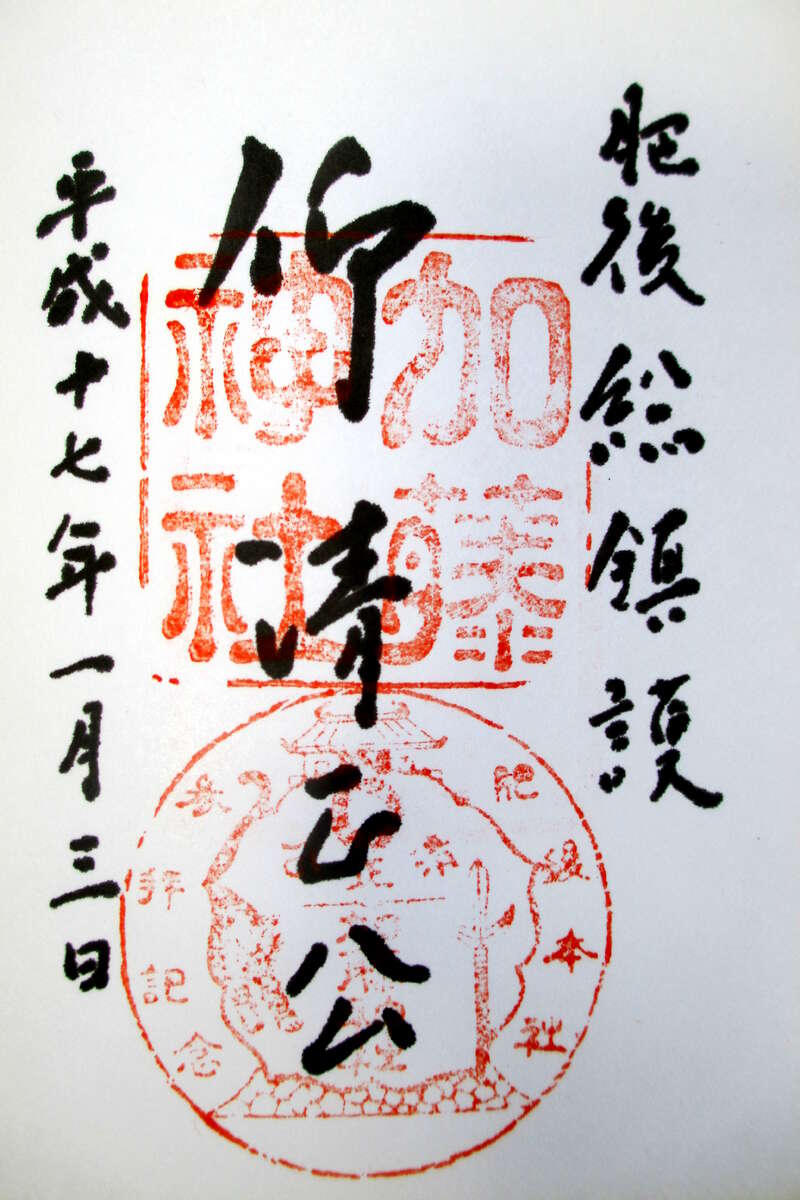 肥後総鎮護
仰清正公
平成十七年一月三日
加藤
神社
肥後本社
参拝記念